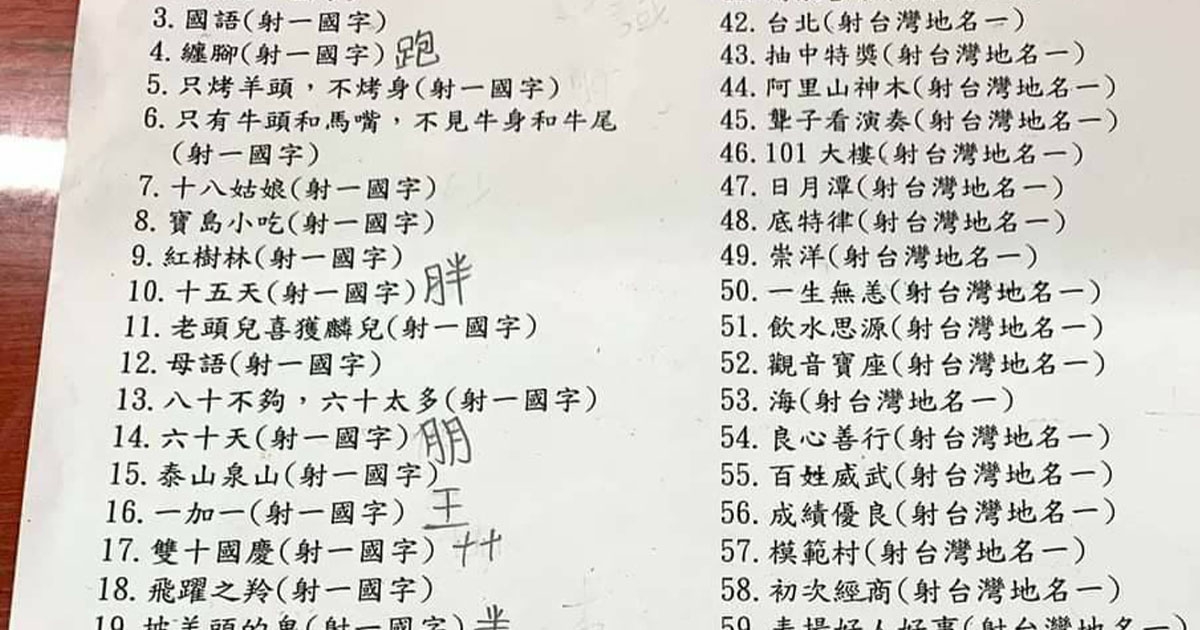 3. 國語(射一國字)
4. 纏腳(射一國字) 跑
5. 只烤羊頭，不烤身(射一國字)
6. 只有牛頭和馬嘴，不見牛身和牛尾
(射一國字)
7. 十八姑娘(射一國字)
8. 寶島小吃(射一國字)
9. 紅樹林(射一國字)
10. 十五天(射一國字) 胖
11. 老頭兒喜獲麟兒(射一國字)
12. 母語(射一國字)
13. 八十不夠，六十太多(射一國字)
14. 六十天(射一國字) 朋
15. 泰山泉山(射一國字)
16. 一加一(射一國字) 王
17. 雙十國慶(射一國字) 艹
18. 飛躍之羚(射一國字)
19. 披羊頭的鬼(射一國字)
42. 台北(射台灣地名一)
43. 抽中特獎(射台灣地名一)
44. 阿里山神木(射台灣地名一)
45. 聾子看演奏(射台灣地名一)
46. 101 大樓(射台灣地名一)
47. 日月潭(射台灣地名一)
48. 底特律(射台灣地名一)
49. 崇洋(射台灣地名一)
50. 一生無恙(射台灣地名一)
51. 飲水思源(射台灣地名一)
52. 觀音寶座(射台灣地名一)
53. 海(射台灣地名一)
54. 良心善行(射台灣地名一)
55. 百姓威武(射台灣地名一)
56. 成績優良(射台灣地名一)
57. 模範村(射台灣地名一)
58. 初次經商(射台灣地名一)
59. 表揚好人好事(射台灣地名一)